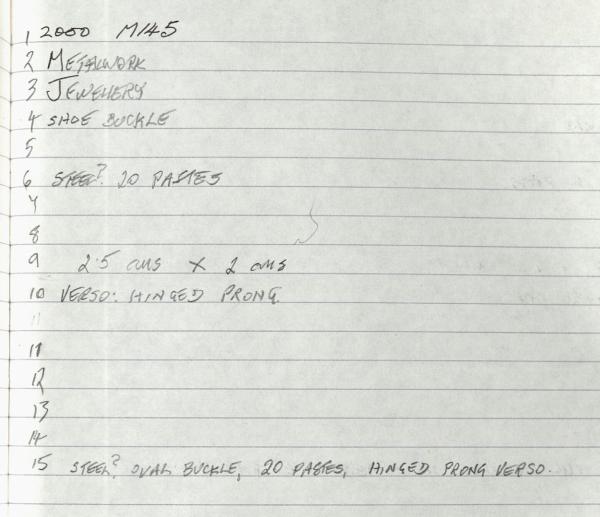 1 2000 M145
2 METALWORK
3 JEWELLERY
4 SHOE BUCKLE
5
6 STEEL? 20 PASTES
7
8
9 2.5 cms X 2 cms
10 VERSO: HINGED PRONG.
11
11
12
13
14
15 STEEL? OVAL BUCKLE, 20 PASTES, HINGED PRONG VERSO.